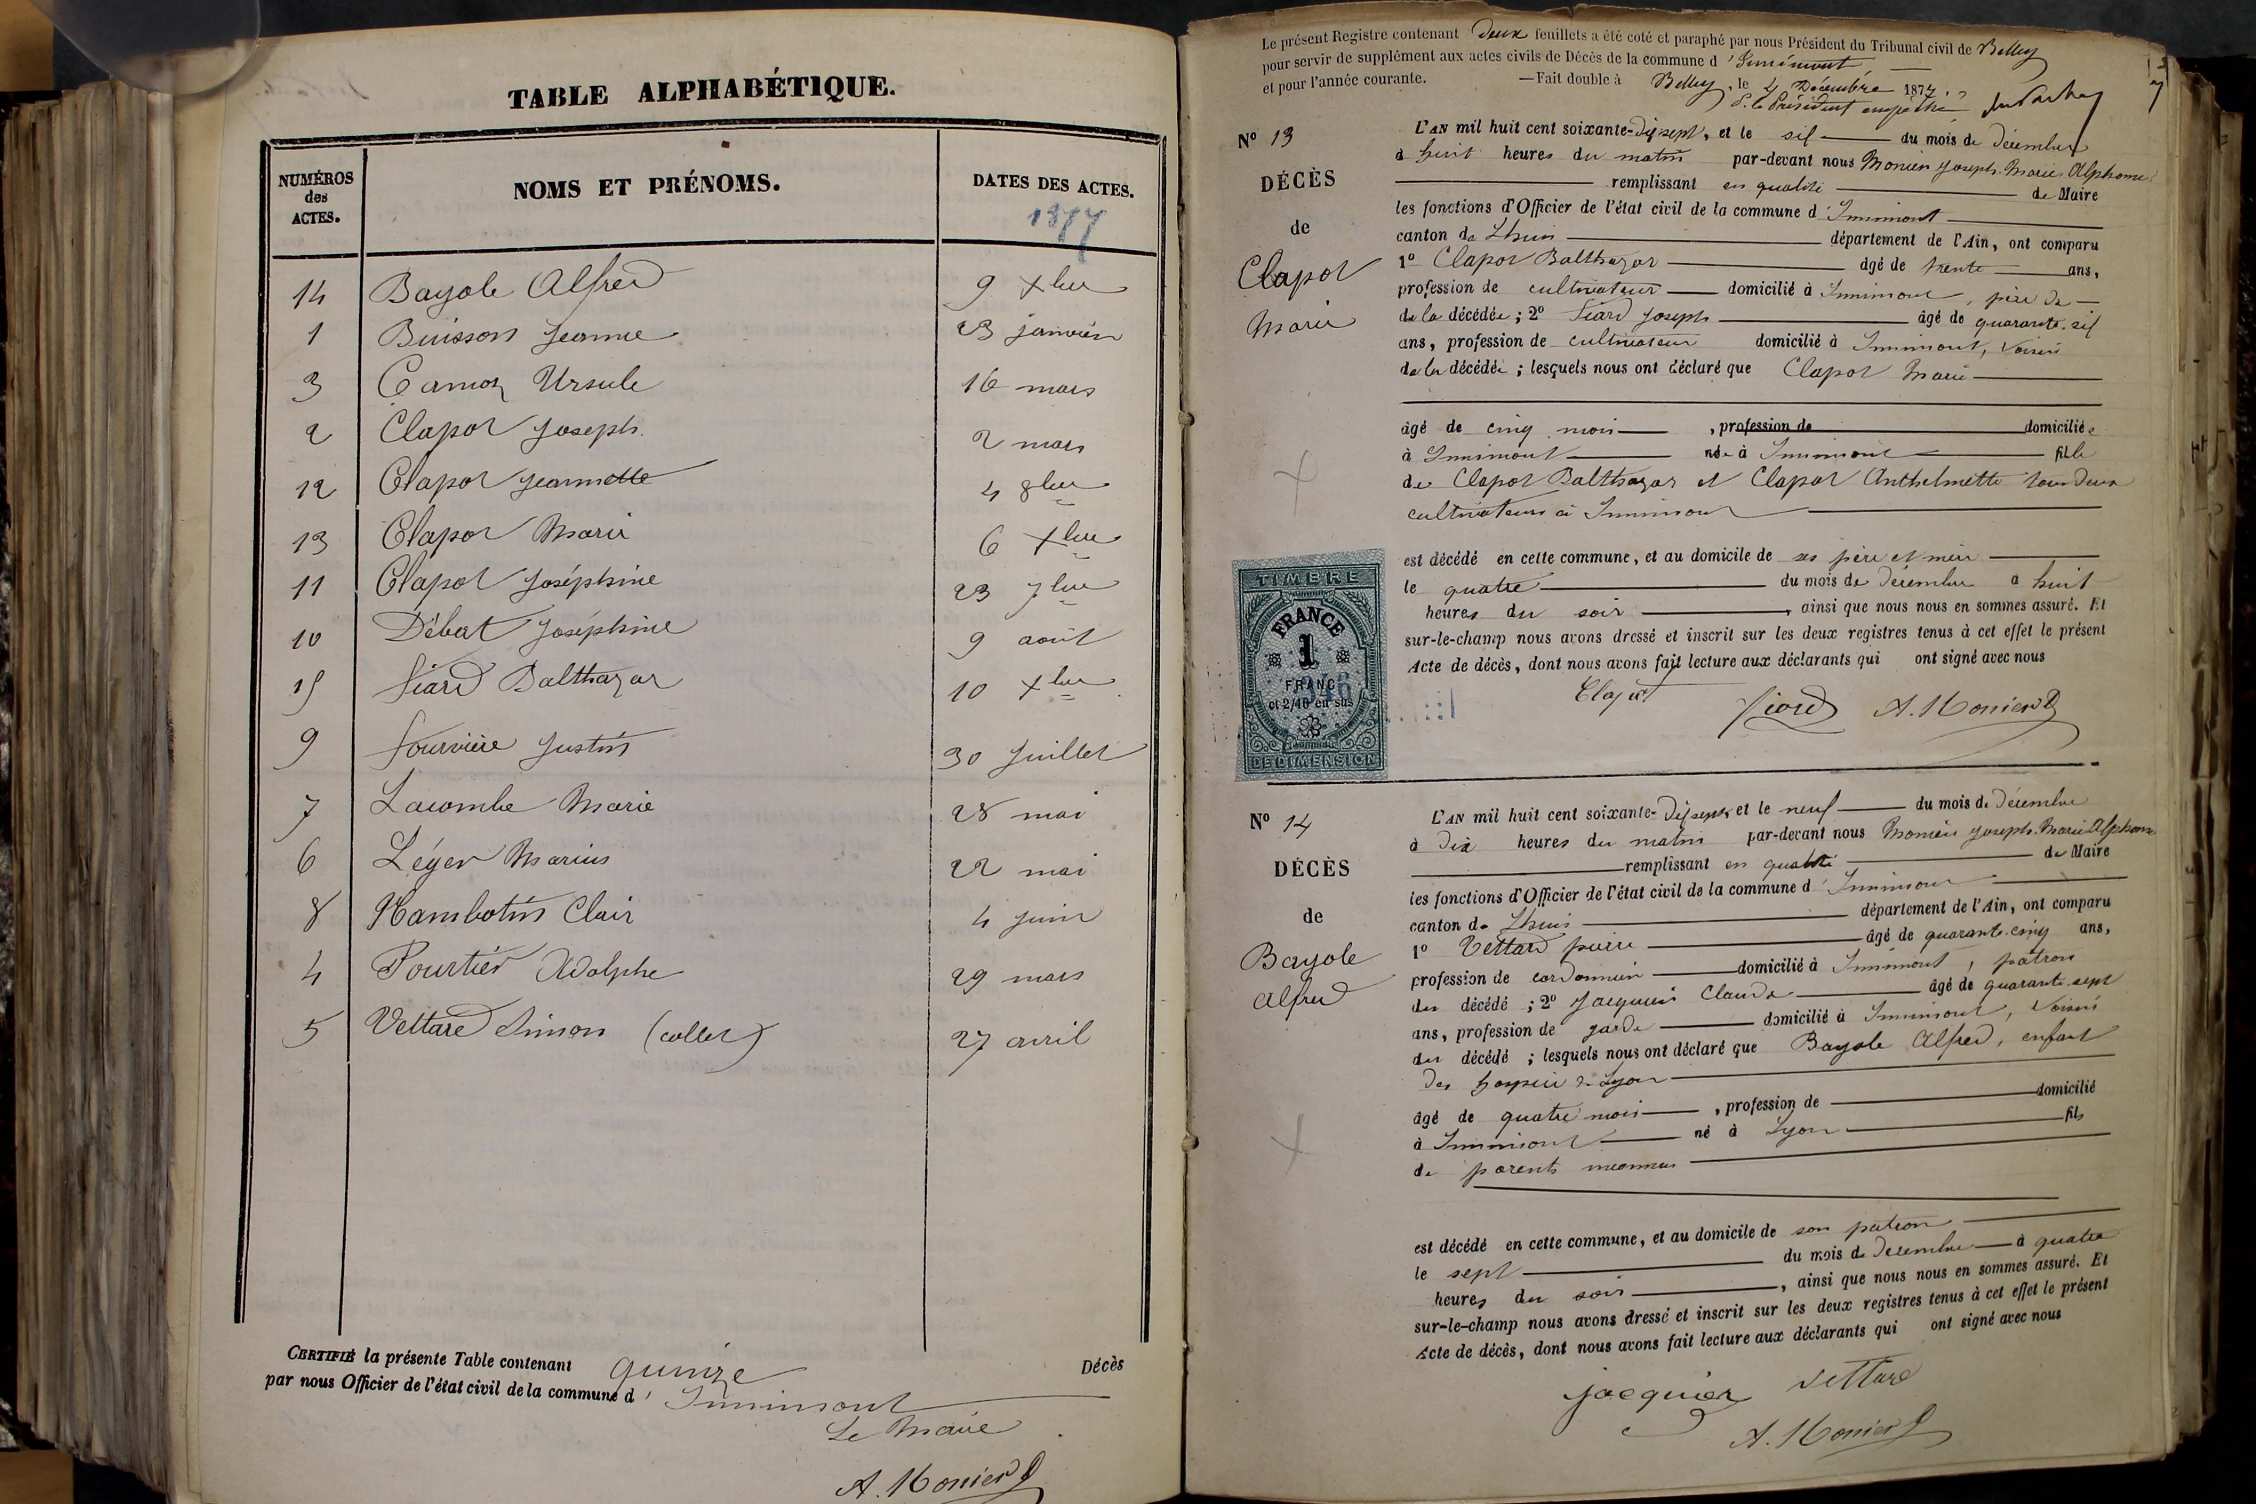 TABLE ALPHABÉTIQUE.
NUMÉROS des ACTES.
NOMS ET PRÉNOMS.
DATES DES ACTES.
1877
14 Bayole Alfred 9 Xbre
1 Buisson Jeanne 23 janvier
3 Camoz Ursule 16 mars
2 Clapot Joseph 2 mars
12 Clapot Jeannette 4 8bre
13 Clapot Marie 6 Xbre
11 Clapot Joséphine 23 7bre
10 Débat Joséphine 9 août
15 Fiard Balthazar 10 Xbre
9 Fourvière Justin 30 Juillet
7 Lacombe Marie 28 mai
6 Léger Marius 22 mai
8 Nambotin Clair 4 juin
4 Pourtier Adolphe 29 mars
5 Vettard Simon (collet) 27 avril
CERTIFIÉ la présente Table contenant quinze Décès
par nous Officier de l'état civil de la commune d' Innimont
Le Maire
A. Monier
Le présent Registre contenant deux feuillets a été coté et paraphé par nous Président du Tribunal civil de Belley
pour servir de supplément aux actes civils de Décès de la commune d' Innimont
et pour l'année courante. —Fait double à Belley, le 4 Décembre 1877.
P. le Président empêché
N° 13
DÉCÈS
de
Clapot
Marie
L'AN mil huit cent soixante-dix sept, et le six du mois de Décembre
à huit heures du matin par-devant nous Monier Joseph Marie Alphonse
remplissant en qualité de Maire
les fonctions d'Officier de l'état civil de la commune d' Innimont
canton de Lhuis département de l'Ain, ont comparu
1° Clapot Balthazar âgé de trente ans,
profession de cultivateur domicilié à Innimont, père de
de la décédée ; 2° Fiard Joseph âgé de quarante-six
ans, profession de cultivateur domicilié à Innimont, voisin
de la décédée ; lesquels nous ont déclaré que Clapot Marie
âgé de cinq mois , profession de domiciliée
à Innimont née à Innimont fille
de Clapot Balthazar et Clapot Anthelmette tous deux
cultivateurs à Innimont
est décédé en cette commune, et au domicile de ses père et mère
le quatre du mois de Décembre à huit
heures du soir , ainsi que nous nous en sommes assuré. Et
sur-le-champ nous avons dressé et inscrit sur les deux registres tenus à cet effet le présent
Acte de décès, dont nous avons fait lecture aux déclarants qui ont signé avec nous
Clapot Fiard A. Monier
TIMBRE
FRANCE
1
FRANC
et 2/10 en sus
DE DIMENSION
N° 14
DÉCÈS
de
Bayole
Alfred
L'AN mil huit cent soixante-dix sept et le neuf du mois de Décembre
à dix heures du matin par-devant nous Monier Joseph Marie Alphonse
remplissant en qualité de Maire
les fonctions d'Officier de l'état civil de la commune d' Innimont
canton de Lhuis département de l'Ain, ont comparu
1° Vettard pierre âgé de quarante-cinq ans,
profession de cordonnier domicilié à Innimont, patron
du décédé ; 2° Jacquier Claude âgé de quarante-sept
ans, profession de garde domicilié à Innimont, voisin
du décédé ; lesquels nous ont déclaré que Bayole Alfred, enfant
des hospices de Lyon
âgé de quatre mois , profession de domicilié
à Innimont né à Lyon fils
de parents inconnus
est décédé en cette commune, et au domicile de son patron
le sept du mois de Décembre à quatre
heures du soir , ainsi que nous nous en sommes assuré. Et
sur-le-champ nous avons dressé et inscrit sur les deux registres tenus à cet effet le présent
Acte de décès, dont nous avons fait lecture aux déclarants qui ont signé avec nous
jacquier vettard
A. Monier